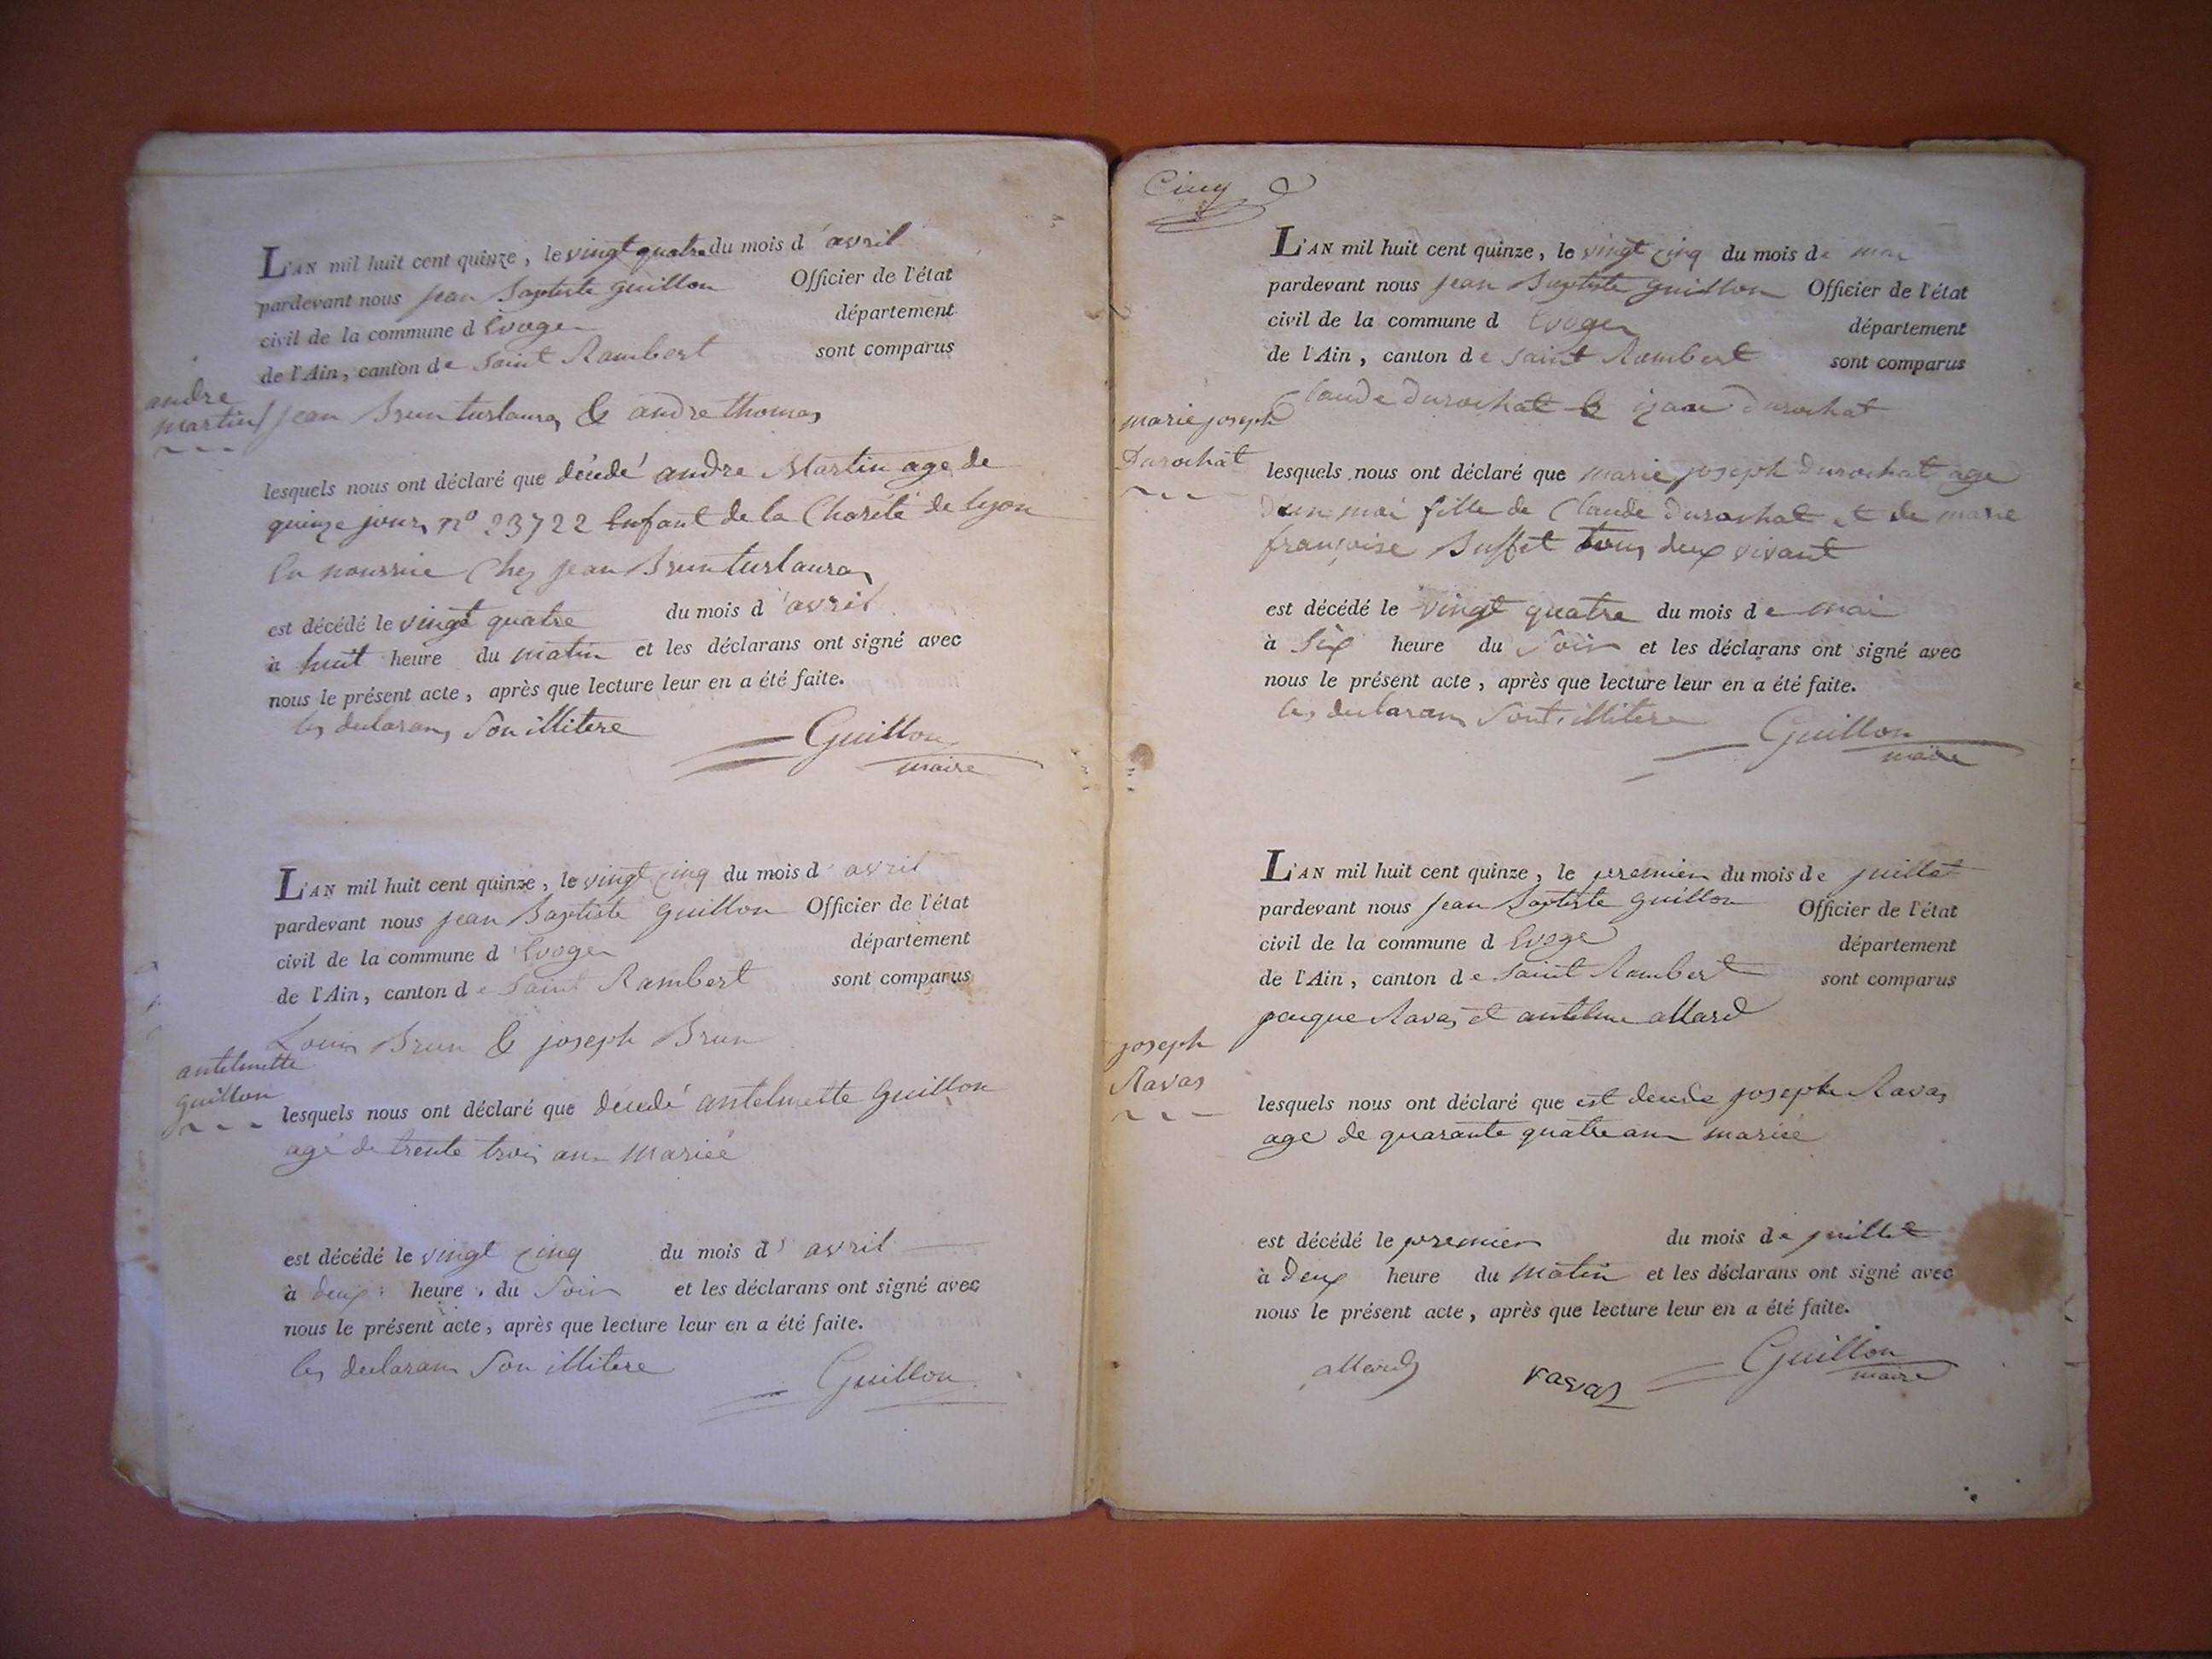 L'AN mil huit cent quinze, le vingt quatre du mois d'avril
pardevant nous jean Baptiste guillon Officier de l'état
civil de la commune d Evoges département
de l'Ain, canton de saint Rambert sont comparus
andre
martin
jean Brun turlauras & andre thomas
lesquels nous ont déclaré que décédé andre Martin age de
quinze jours n° 23722 Enfant de la Charité de lyon
En nourrice Chez jean Brun turlauras
est décédé le vingt quatre du mois d'avril
à huit heure du matin et les déclarans ont signé avec
nous le présent acte, après que lecture leur en a été faite.
les declarans Son illitere Guillon
maire
L'AN mil huit cent quinze, le vingt cinq du mois d'avril
pardevant nous jean Baptiste guillon Officier de l'état
civil de la commune d'Evoges département
de l'Ain, canton de saint Rambert sont comparus
Louis Brun & joseph Brun
antelmette
guillon
lesquels nous ont déclaré que décédé antelmette guillon
agé de trente trois ans mariée
est décédé le vingt cinq du mois d'avril
à deux heure du soir et les déclarans ont signé avec
nous le présent acte, après que lecture leur en a été faite.
les declarans Son illitere Guillon
Cinq
L'AN mil huit cent quinze, le vingt cinq du mois de mai
pardevant nous jean Baptiste guillon Officier de l'état
civil de la commune d Evoges département
de l'Ain, canton de saint Rambert sont comparus
Claude Durochat & Durochat
marie joseph
Durochat
lesquels nous ont déclaré que marie joseph Durochat age
d'un moi fille de Claude Durochat et de marie
françoise Buffet tous deux vivant
est décédé le vingt quatre du mois de mai
à six heure du soir et les déclarans ont signé avec
nous le présent acte, après que lecture leur en a été faite.
les declarans Sont illitere Guillon
maire
L'AN mil huit cent quinze, le premier du mois de juillet
pardevant nous jean Baptiste guillon Officier de l'état
civil de la commune d Evoge département
de l'Ain, canton de saint Rambert sont comparus
jacque Ravas et antelme allard
joseph
Ravas
lesquels nous ont déclaré que est decede joseph Ravas
age de quarante quatre ans mariée
est décédé le premier du mois de juillet
à deux heure du matin et les déclarans ont signé avec
nous le présent acte, après que lecture leur en a été faite.
allard ravas Guillon
maire